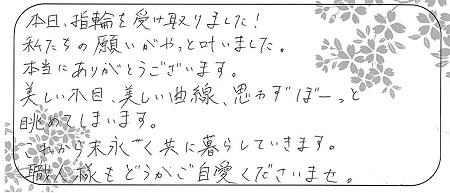 本日、指輪を受け取りました!
私たちの願いがやっと叶いました。
本当にありがとうございます。
美しい木目、美しい曲線、思わずぼーっと
眺めてしまいます。
これから末永く共に暮らしていきます。
職人様もどうかご自愛くださいませ。